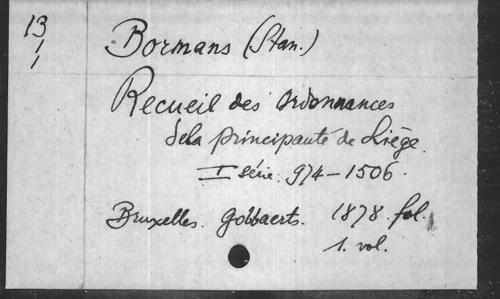 13
1
1
Bormans (Stan.)
Recueil des ordonnances
dela principauté de Liége.
I série. 974-1506.
Bruxelles. Gobbaerts. 1878. fol.
1. vol.